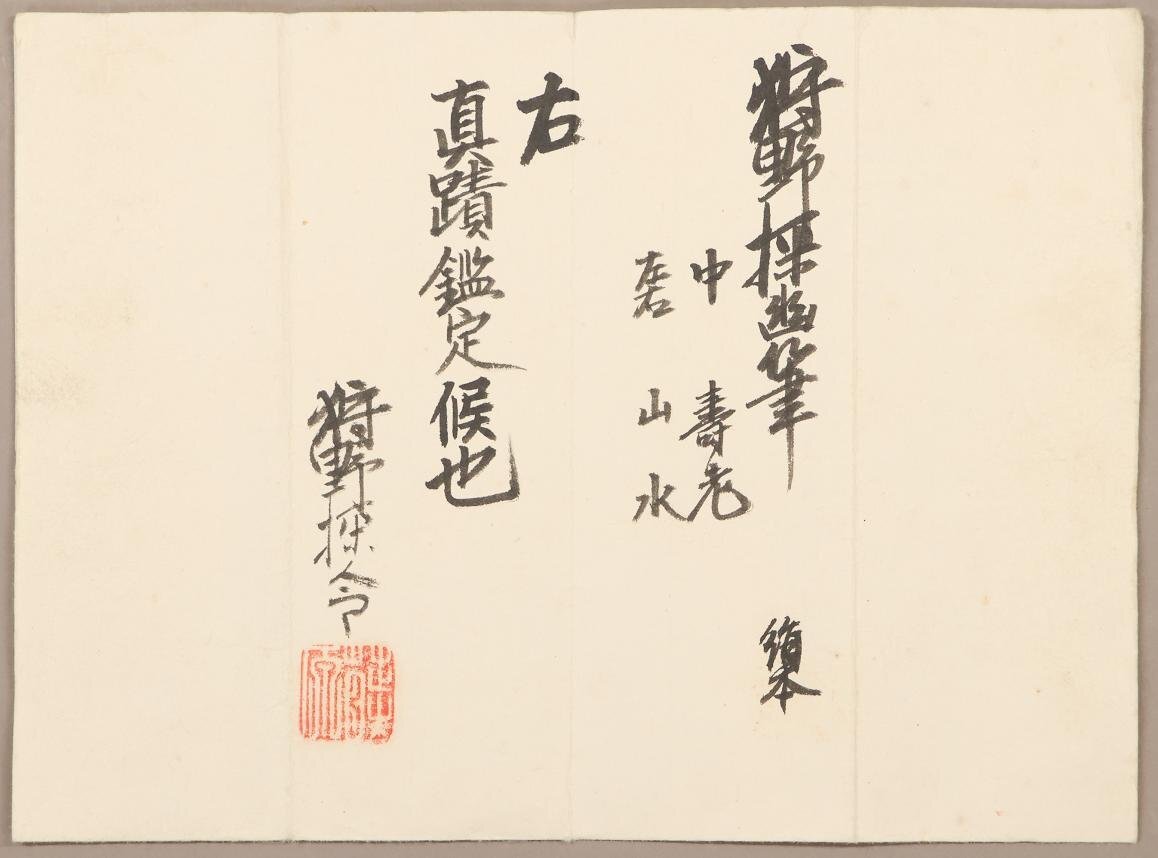 狩野探幽筆 絹本
中 壽老
左右 山水
右
真蹟鑑定候也
狩野探令